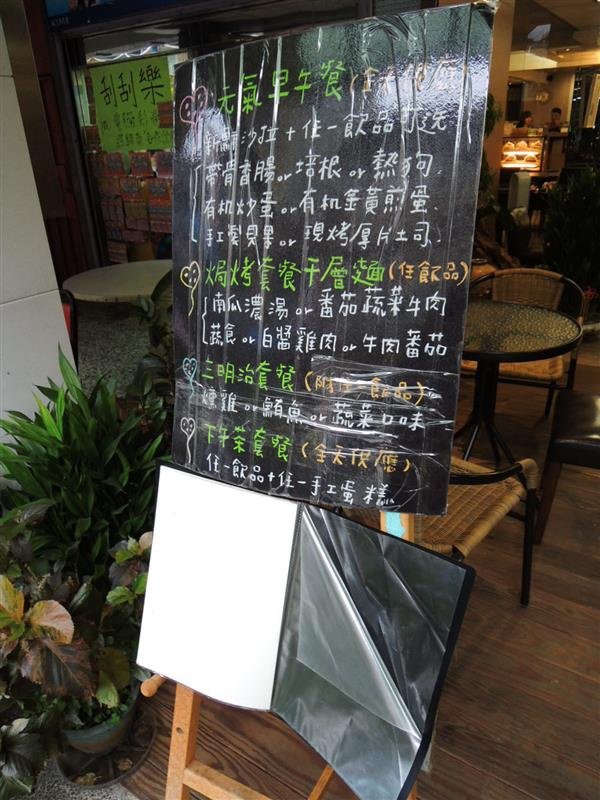 刮刮樂
元氣早午餐(全天供應)
新鮮沙拉+任一飲品可选
帶骨香腸or培根or熱狗
有机炒蛋or有机金黃煎蛋
手工製貝果or現烤厚片土司
焗烤套餐千層麵(任飲品)
南瓜濃湯or番茄蔬菜牛肉
蔬食or白醬雞肉or牛肉番茄
三明治套餐(附任一飲品)
燻雞or鮪魚or蔬菜口味
下午茶套餐(全天供應)
任一飲品+任一手工蛋糕